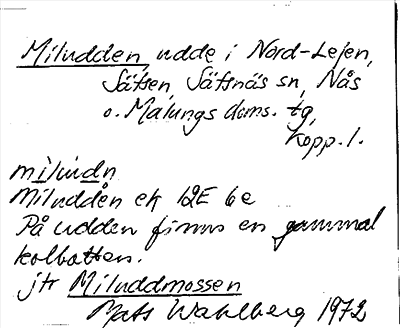 Miludden, udde i Nord-Lejen,
Sätsen, Säfsnäs sn, Nås
o. Malungs doms. tg,
Kopp. l.
mìlùdn
Miludden ek 12E 6e
På udden finns en gammal
kolbotten.
jfr Miluddmossen
Mats Wahlberg 1972